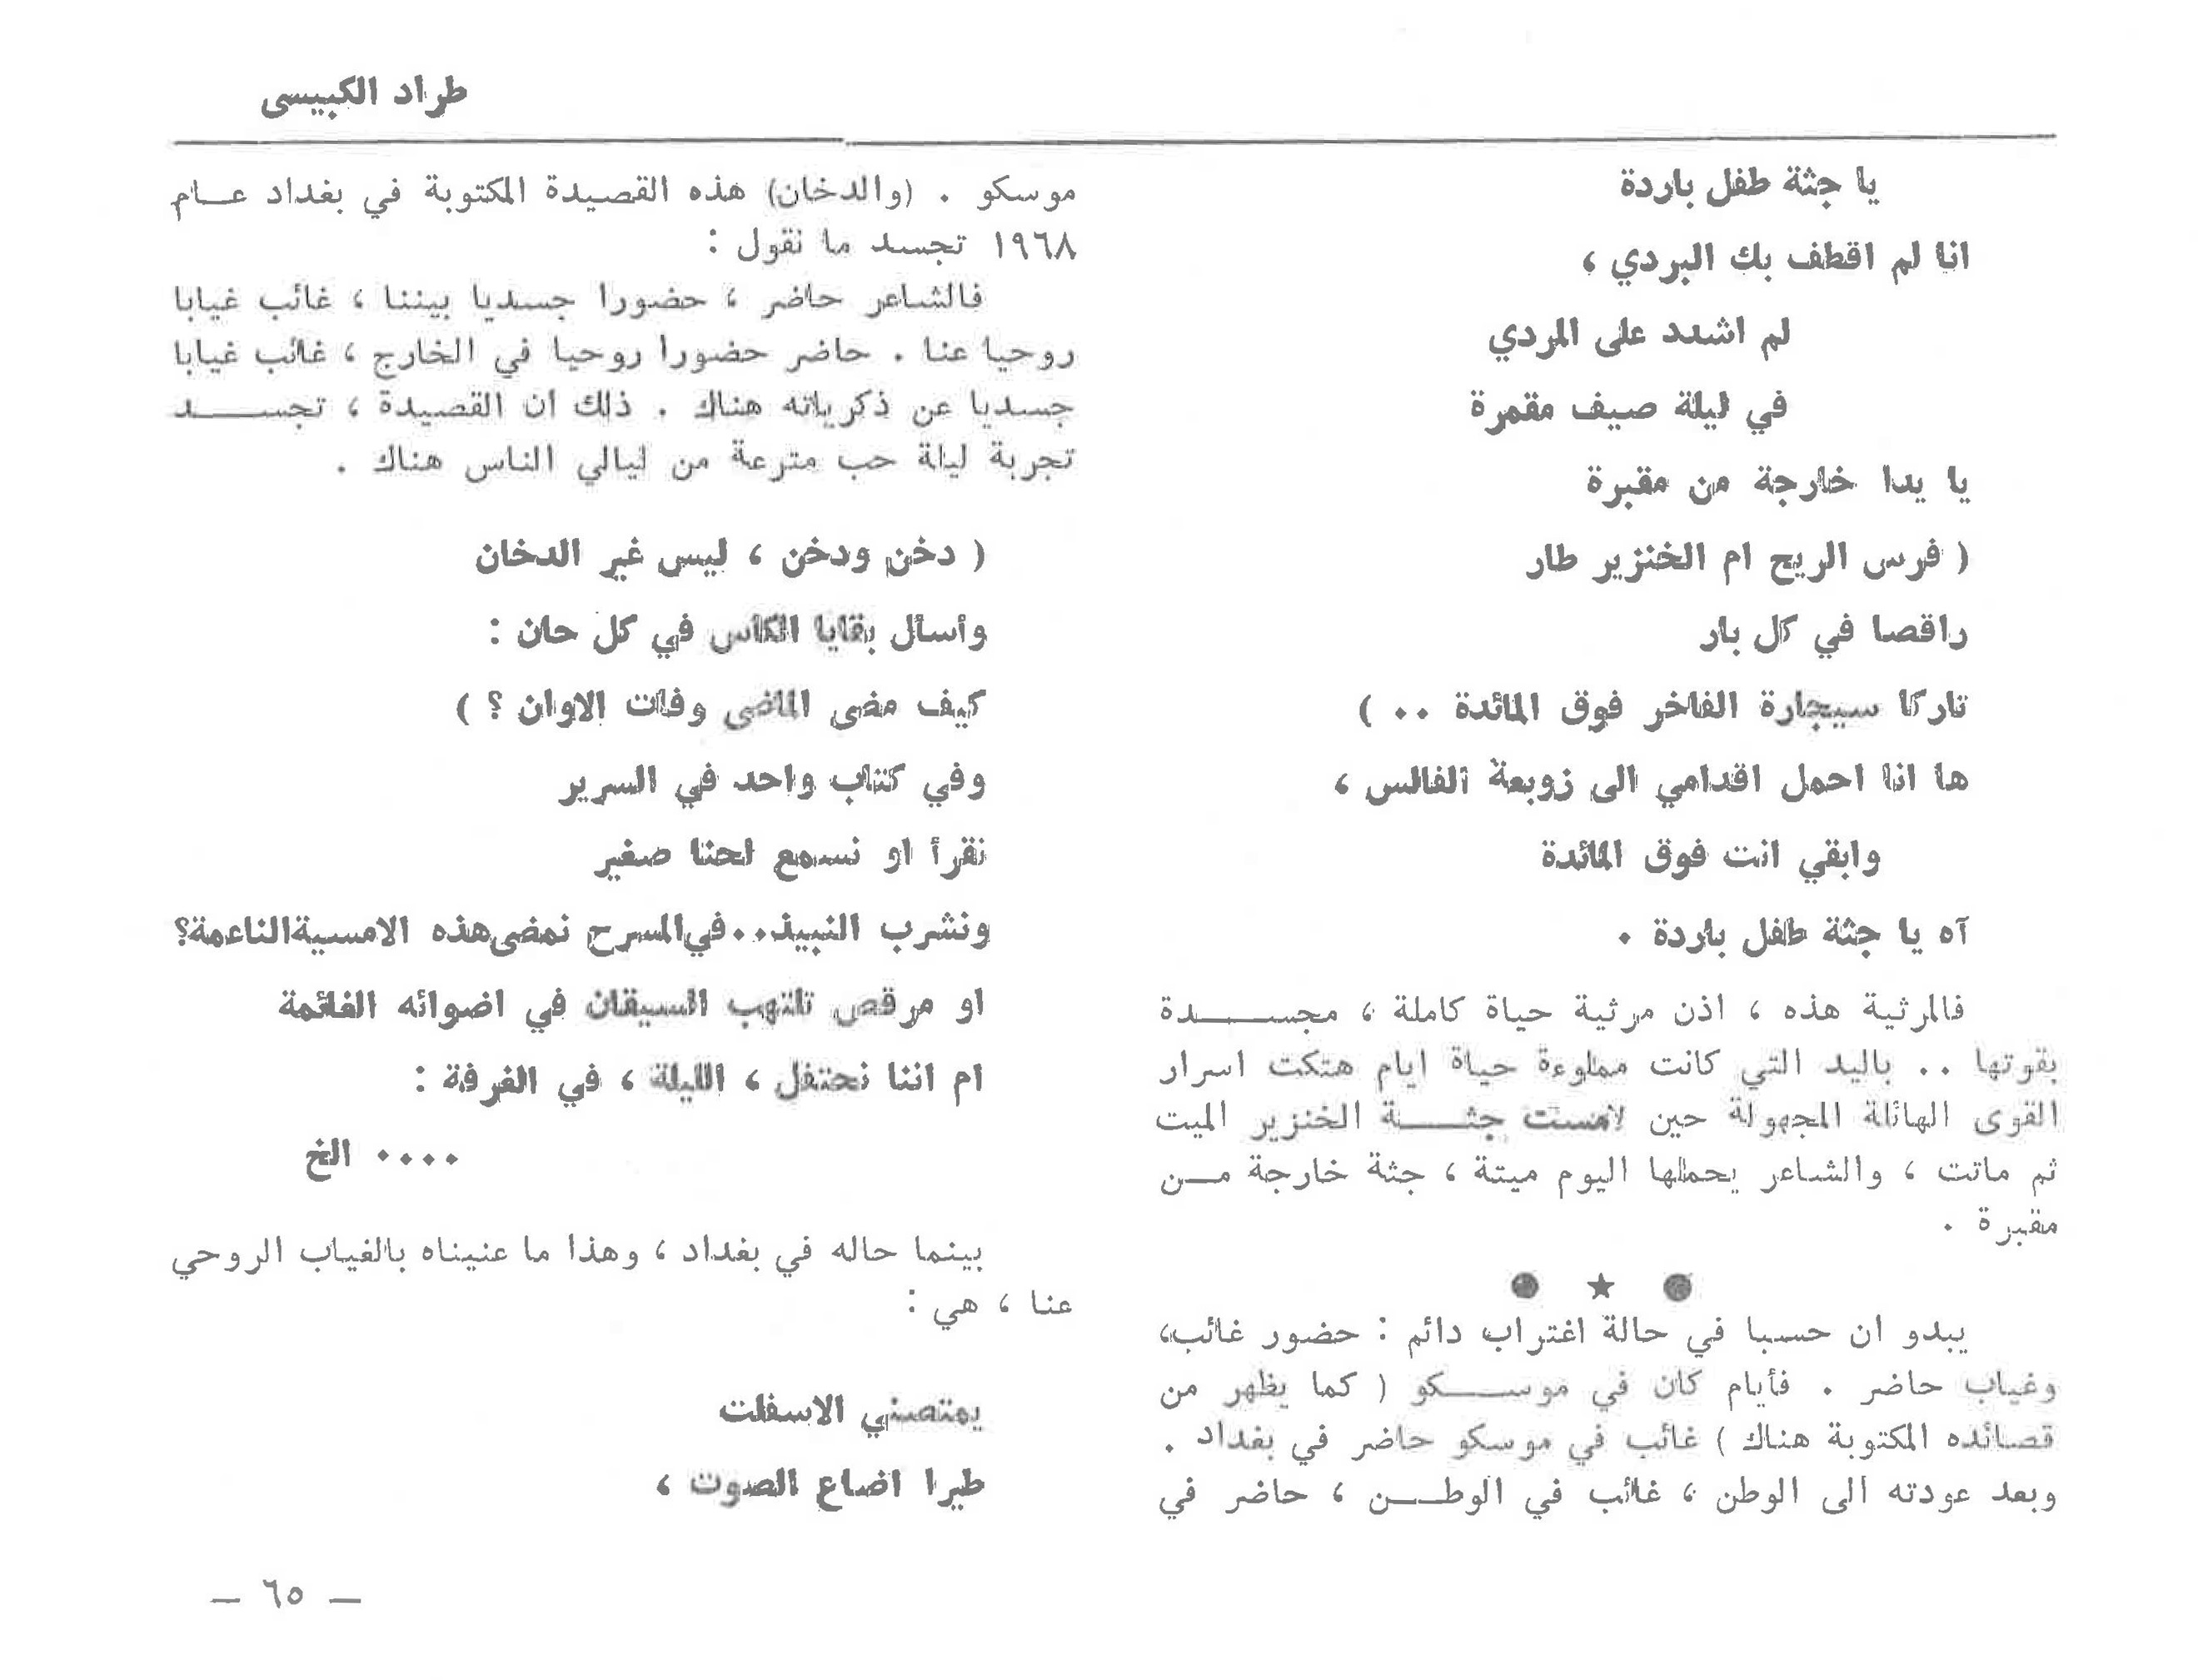 طراد الكبيسى
يا جثة طفل باردة
انا لم اقطف بك البردي ،
لم اشدد على المردي
في ليلة صيف مقمرة
يا يدا خارجة من مقبرة
( فرس الريح ام الخنزير طار
راقصا في كل بار
تاركا سيجارة الفاخر فوق المائدة .. )
ها انا احمل اقدامي الى زوبعة الفالس ،
وابقي انت فوق المائدة
آه يا جثة طفل باردة .
فالمرثية هذه ، اذن مرثية حياة كاملة ، مجســـدة
بقوتها .. باليد التي كانت مملوءة حياة ايام هتكت اسرار
القوى الهائلة المجهولة حين لامست جثـــة الخنزير الميت
ثم ماتت ، والشاعر يحملها اليوم ميتة ، جثة خارجة مــن
مقبرة .
● ★ ●
يبدو ان حسبا في حالة اغتراب دائم : حضور غائب،
وغياب حاضر . فأيام كان في موســـكو ( كما يظهر من
قصائده المكتوبة هناك ) غائب في موسكو حاضر في بغداد .
وبعد عودته الى الوطن ، غائب في الوطــن ، حاضر في
موسكو . (والدخان) هذه القصيدة المكتوبة في بغداد عــام
١٩٦٨ تجسد ما نقول :
فالشاعر حاضر ، حضورا جسديا بيننا ، غائب غيابا
روحيا عنا . حاضر حضورا روحيا في الخارج ، غائب غيابا
جسديا عن ذكرياته هناك . ذلك ان القصيدة ، تجســـد
تجربة ليلة حب مترعة من ليالي الناس هناك .
( دخن ودخن ، ليس غير الدخان
وأسأل بقايا الكاس في كل حان :
كيف مضى الماضى وفات الاوان ؟ )
وفي كتاب واحد في السرير
نقرأ او نسمع لحنا صغير
ونشرب النبيذ..في المسرح نمضى هذه الامسية الناعمة؟
او مرقص تلتهب السيقان في اضوائه الغائمة
ام اننا نحتفل ، الليلة ، في الغرفة :
.... الخ
بينما حاله في بغداد ، وهذا ما عنيناه بالغياب الروحي
عنا ، هي :
يمتصني الاسفلت
طيرا اضاع الصوت ،
— ٦٥ —